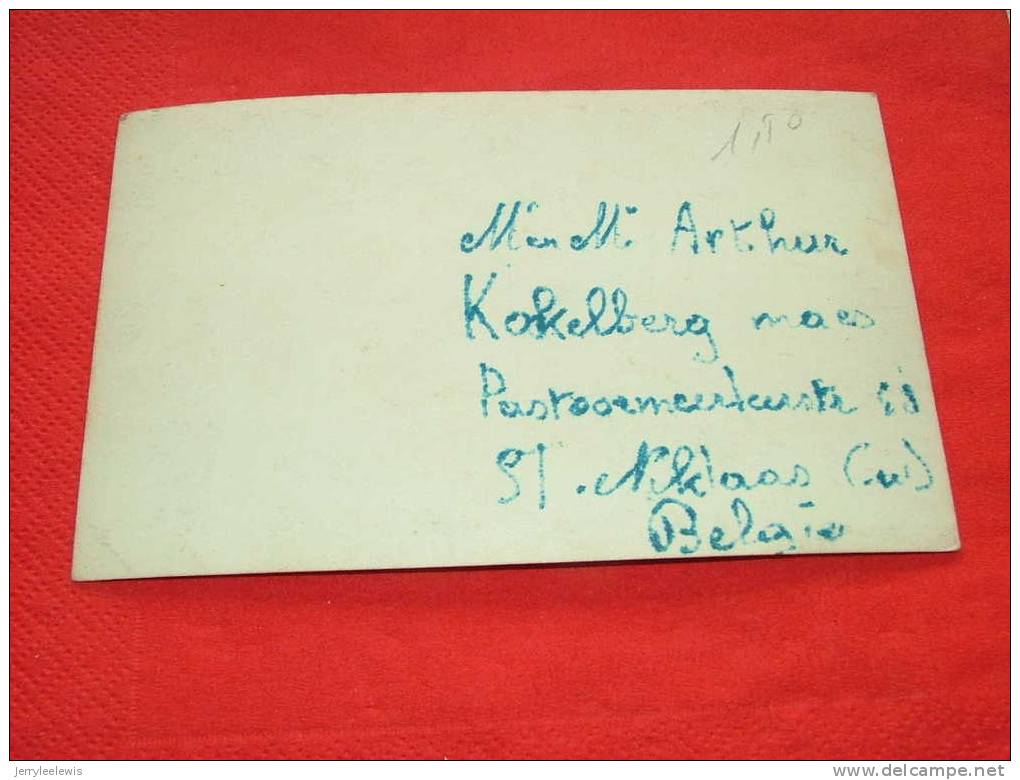 1,50
M en M. Arthur
Kokelberg maes
St. Niklaas (W)
Belgie
jerryleelewis
www.delcampe.net